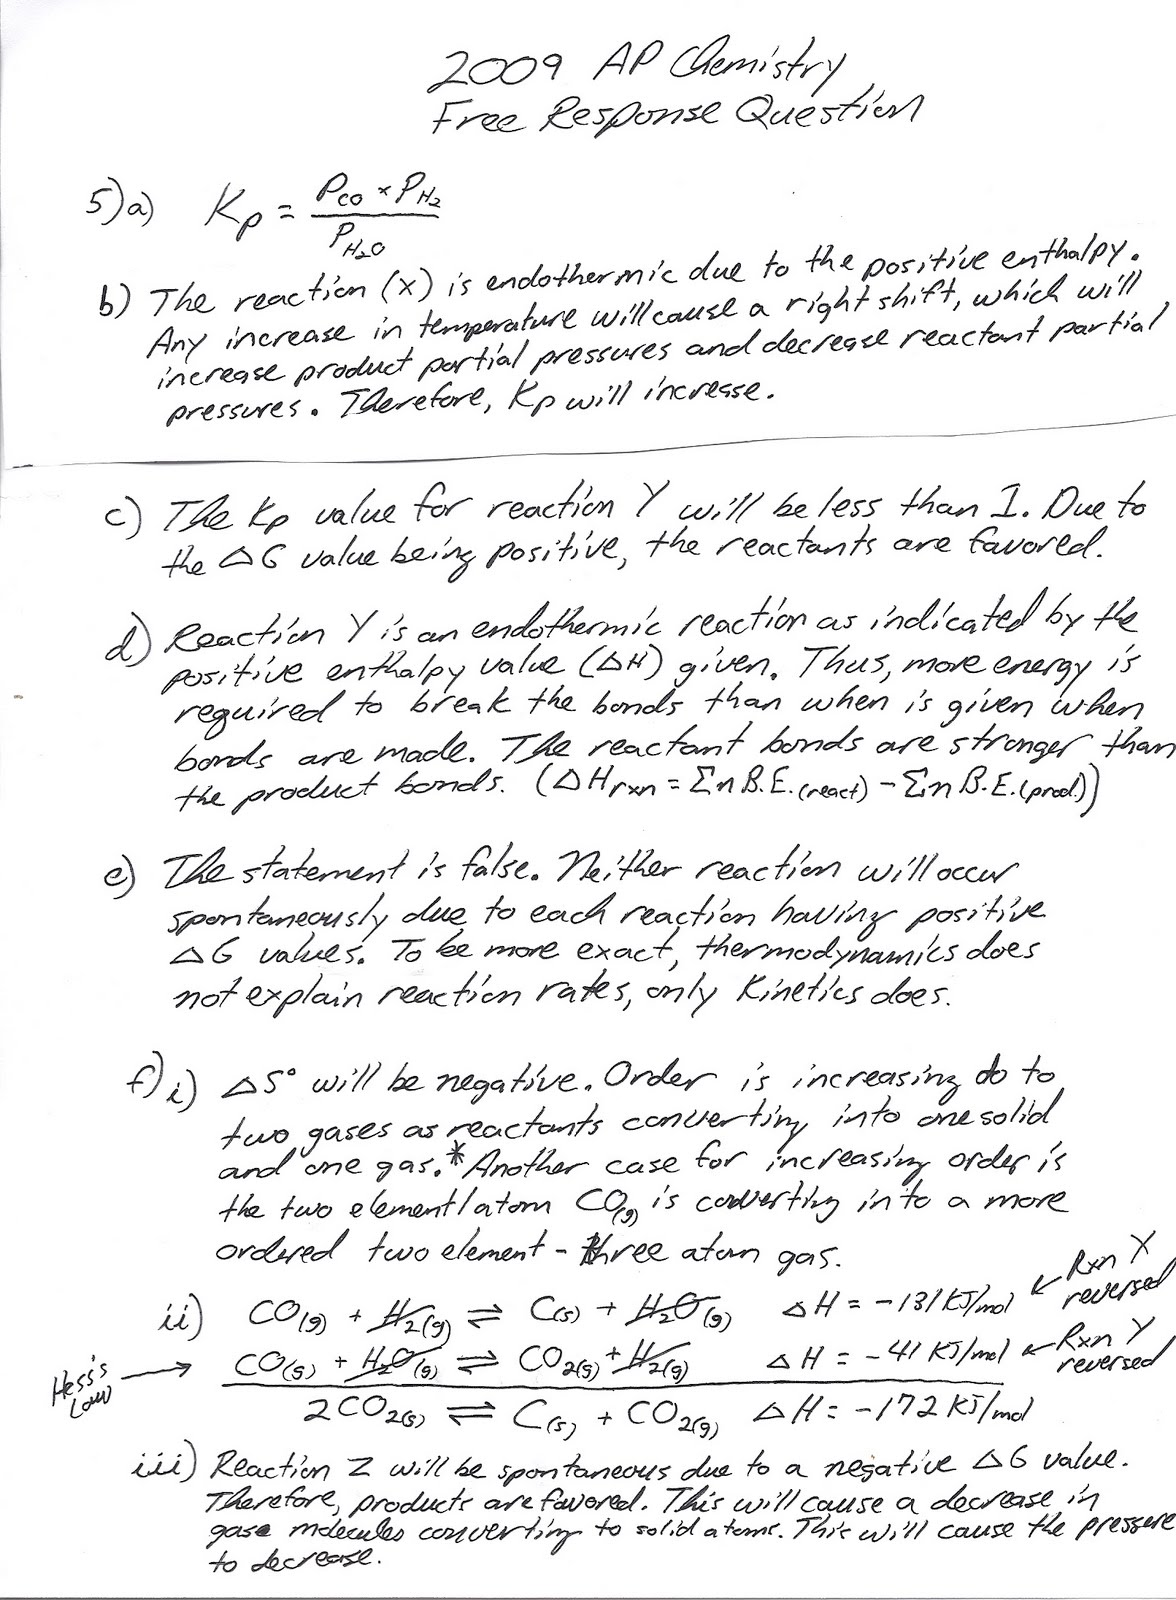 2009 AP Chemistry
Free Response Question
5) a) Kp = PCO × PH2 / PH2O
b) The reaction (X) is endothermic due to the positive enthalpy.
Any increase in temperature will cause a right shift, which will
increase product partial pressures and decrease reactant partial
pressures. Therefore, Kp will increase.
c) The Kp value for reaction Y will be less than 1. Due to
the ΔG value being positive, the reactants are favored.
d) Reaction Y is an endothermic reaction as indicated by the
positive enthalpy value (ΔH) given. Thus, more energy is
required to break the bonds than when is given when
bonds are made. The reactant bonds are stronger than
the product bonds. (ΔHrxn = Σn B.E.(react) - Σn B.E.(prod.))
e) The statement is false. Neither reaction will occur
spontaneously due to each reaction having positive
ΔG values. To be more exact, thermodynamics does
not explain reaction rates, only Kinetics does.
f) i) ΔS° will be negative. Order is increasing do to
two gases as reactants converting into one solid
and one gas.* Another case for increasing order is
the two element/atom CO(g) is converting into a more
ordered two element - three atom gas.
ii) CO(g) + H2(g) ⇌ C(s) + H2O(g) ΔH = -131 KJ/mol ← Rxn X reversed
Hess's Law → CO(g) + H2O(g) ⇌ CO2(g) + H2(g) ΔH = -41 KJ/mol ← Rxn Y reversed
2CO2(g) ⇌ C(s) + CO2(g) ΔH = -172 KJ/mol
iii) Reaction Z will be spontaneous due to a negative ΔG value.
Therefore, products are favored. This will cause a decrease in
gase molecules converting to solid atoms. This will cause the pressure
to decrease.